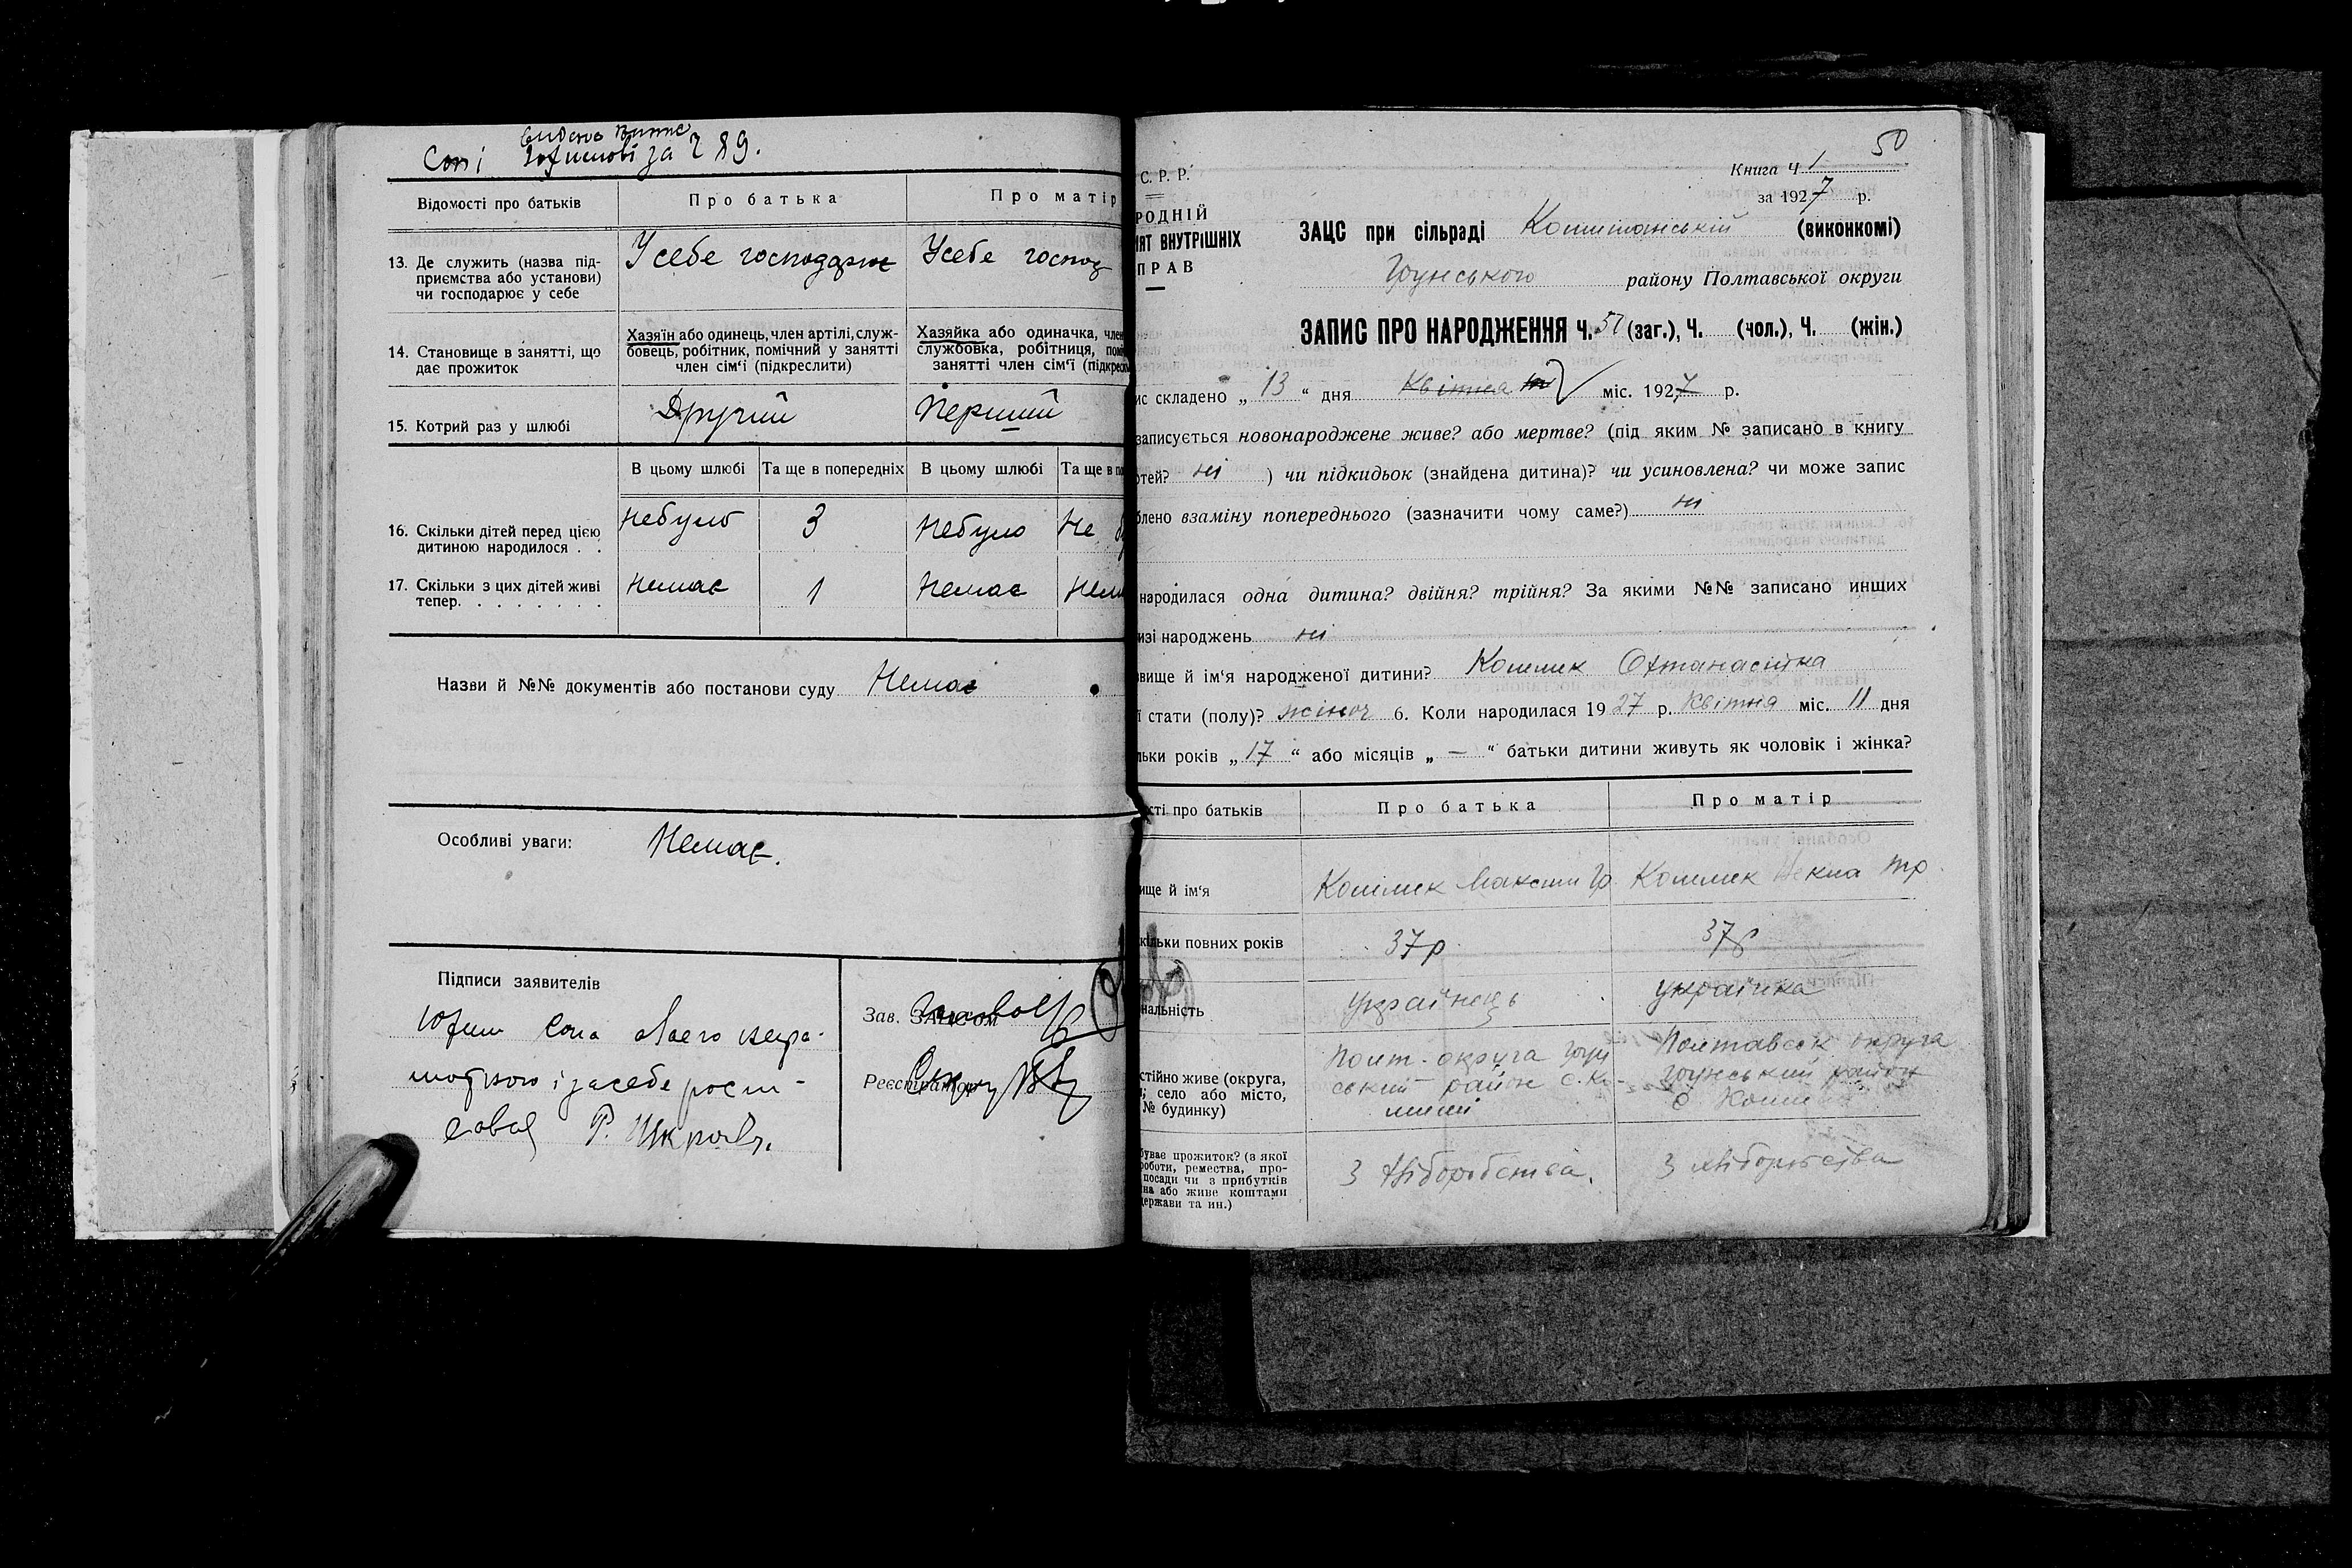 Соні за Ч 89.
Відомості про батьків
Про батька
Про матір
13. Де служить (назва під-
приємства або установи)
чи господарює у себе
У себе господарює
У себе господ
14. Становище в занятті, що
дає прожиток
Хазяїн або одинець, член артілі, служ-
бовець, робітник, помічний у занятті
член сім'ї (підкреслити)
Хазяйка або одиначка, член
службовка, робітниця, помі
занятті член сім'ї (підкресл
15. Котрий раз у шлюбі
Другий
Перший
В цьому шлюбі
Та ще в попередніх
В цьому шлюбі
Та ще в по
16. Скільки дітей перед цією
дитиною народилося . .
Небуло
3
Небуло
Не б
17. Скільки з цих дітей живі
тепер. . . . . . . .
Немає
1
Немає
Нем
Назви й №№ документів або постанови суду Немає
Особливі уваги: Немає.
Підписи заявителів
Юхим Сопа
і за себе роспи-
Р.
Зав. ЗАЦС'ом
Реєстратор
50
Книга Ч 1
за 1927 р.
С. Р. Р.
РОДНІЙ
ІЯТ ВНУТРІШНІХ
ПРАВ
ЗАЦС при сільраді (виконкомі)
Грунського району Полтавської округи
ЗАПИС ПРО НАРОДЖЕННЯ Ч. 51 (заг.), Ч. (чол.), Ч. (жін.)
ис складено „ 13 “ дня Квітня міс. 1927 р.
записується новонароджене живе? або мертве? (під яким № записано в книгу
ртей? ні ) чи підкидьок (знайдена дитина)? чи усиновлена? чи може запис
блено взаміну попереднього (зазначити чому саме?) ні
народилася одна дитина? двійня? трійня? За якими №№ записано инших
изі народжень ні
вище й ім'я народженої дитини? Кошмик
ї стати (полу)? жіноч 6. Коли народилася 1927 р. Квітня міс. 11 дня
льки років „ 17 “ або місяців „ — “ батьки дитини живуть як чоловік і жінка?
сті про батьків
Про батька
Про матір
вище й ім'я
Кошмик Максим Гр
Кошмик Текла
кільки повних років
37 р
37 р
нальність
Українець
Українка
стійно живе (округа,
; село або місто,
№ будинку)
Полт. округа Грун
ський район с. Ко-
Полтавськ округа
Грунський район
с.
буває прожиток? (з якої
роботи, ремества, про-
посади чи з прибутків
на або живе коштами
держави та ин.)
З хліборобства.
З хліборобства